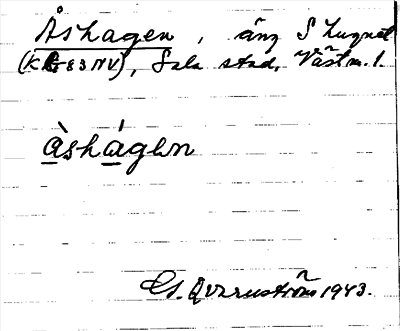 Åshagen, äng S Lugnet
(K 83 NV), Sala stad, Västm. l.
àshágen
G. Qvarnström 1943.